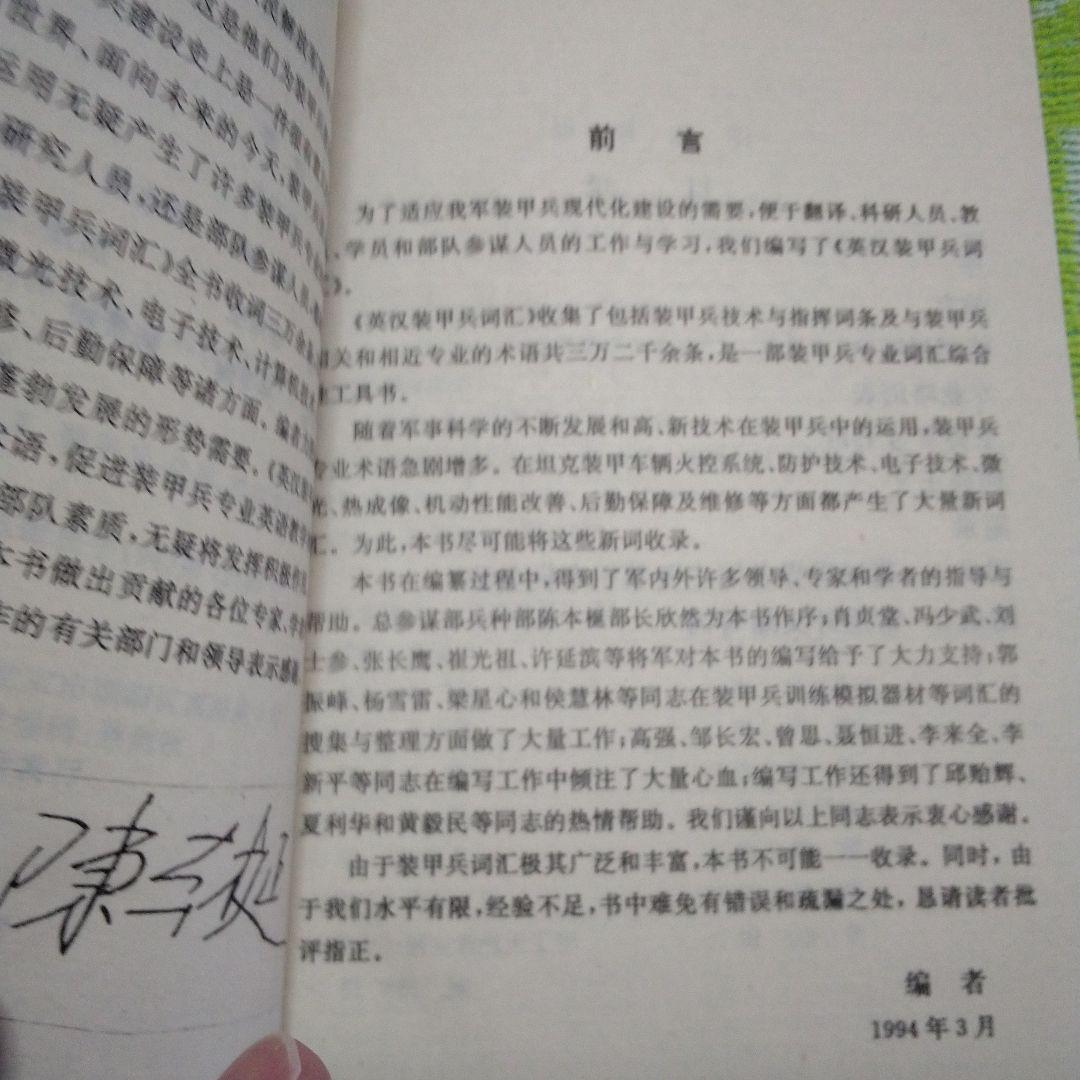 建设史上是一件很有
世界、面向未来的今天，装甲
运用无疑产生了许多装甲兵专
研究人员，还是部队参谋人员，
装甲兵词汇》全书收词三万余
激光技术、电子技术、计算机
修、后勤保障等诸方面。编者
蓬勃发展的形势需要。《英汉
术语，促进装甲兵专业英语教学
部队素质，无疑将发挥积极作
本书做出贡献的各位专家、学
作的有关部门和领导表示感谢
前 言
为了适应我军装甲兵现代化建设的需要，便于翻译、科研人员、教
、学员和部队参谋人员的工作与学习，我们编写了《英汉装甲兵词
》。
《英汉装甲兵词汇》收集了包括装甲兵技术与指挥词条及与装甲兵
相关和相近专业的术语共三万二千余条，是一部装甲兵专业词汇综合
工具书。
随着军事科学的不断发展和高、新技术在装甲兵中的运用，装甲兵
专业术语急剧增多。在坦克装甲车辆火控系统、防护技术、电子技术、微
光、热成像、机动性能改善、后勤保障及维修等方面都产生了大量新词
汇。为此，本书尽可能将这些新词收录。
本书在编纂过程中，得到了军内外许多领导、专家和学者的指导与
帮助。总参谋部兵种部陈本梃部长欣然为本书作序；肖贞堂、冯少武、刘
士参、张长鹰、崔光祖、许延滨等将军对本书的编写给予了大力支持；郭
振峰、杨雪雷、梁星心和侯慧林等同志在装甲兵训练模拟器材等词汇的
搜集与整理方面做了大量工作；高强、邹长宏、曾思、聂恒进、李来全、李
新平等同志在编写工作中倾注了大量心血；编写工作还得到了邱贻辉、
夏利华和黄毅民等同志的热情帮助。我们谨向以上同志表示衷心感谢。
由于装甲兵词汇极其广泛和丰富，本书不可能一一收录。同时，由
于我们水平有限，经验不足，书中难免有错误和疏漏之处，恳请读者批
评指正。
编 者
1994 年 3 月